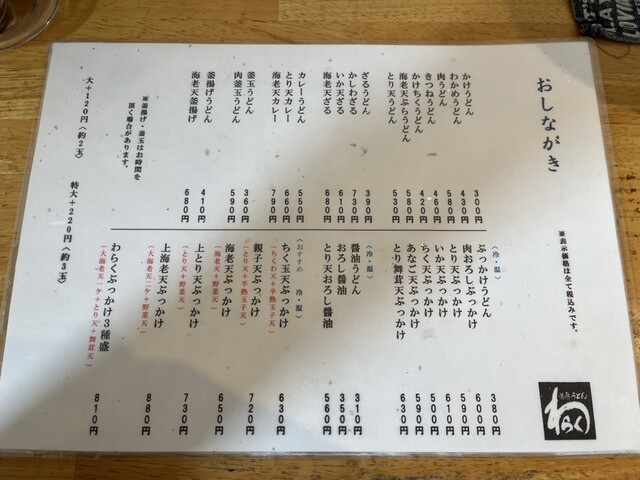 おしながき
※表示価格は全て税込みです。
かけうどん 300円
わかめうどん 430円
肉うどん 580円
きつねうどん 460円
かけちくうどん 420円
海老天ぷらうどん 580円
とり天うどん 530円
ざるうどん 390円
かしわざる 730円
いか天ざる 610円
海老天ざる 680円
カレーうどん 550円
とり天カレー 660円
海老天カレー 790円
釜玉うどん 360円
肉釜玉うどん 590円
釜揚げうどん 410円
海老天釜揚げ 680円
※釜揚げ・釜玉はお時間を
頂く場合があります。
大+120円(約2玉)
特大+220円(約3玉)
(冷・温)
ぶっかけうどん 380円
肉おろしぶっかけ 600円
とり天ぶっかけ 590円
いか天ぶっかけ 610円
ちく天ぶっかけ 500円
あなご天ぶっかけ 590円
とり舞茸天ぶっかけ 630円
(冷・温)
醤油うどん 310円
おろし醤油 350円
とり天おろし醤油 560円
(おすすめ 冷・温)
ちく玉天ぶっかけ 630円
(ちくわ天+半熟玉子天)
親子天ぶっかけ 720円
(とり天+半熟玉子天)
海老天ぶっかけ 650円
(海老天+野菜天)
上とり天ぶっかけ 730円
(とり天+野菜天)
上海老天ぶっかけ 880円
(大海老天二ケ+野菜天)
わらくぶっかけ3種盛 810円
(大海老天一ケ+とり天+舞茸天)
わらく